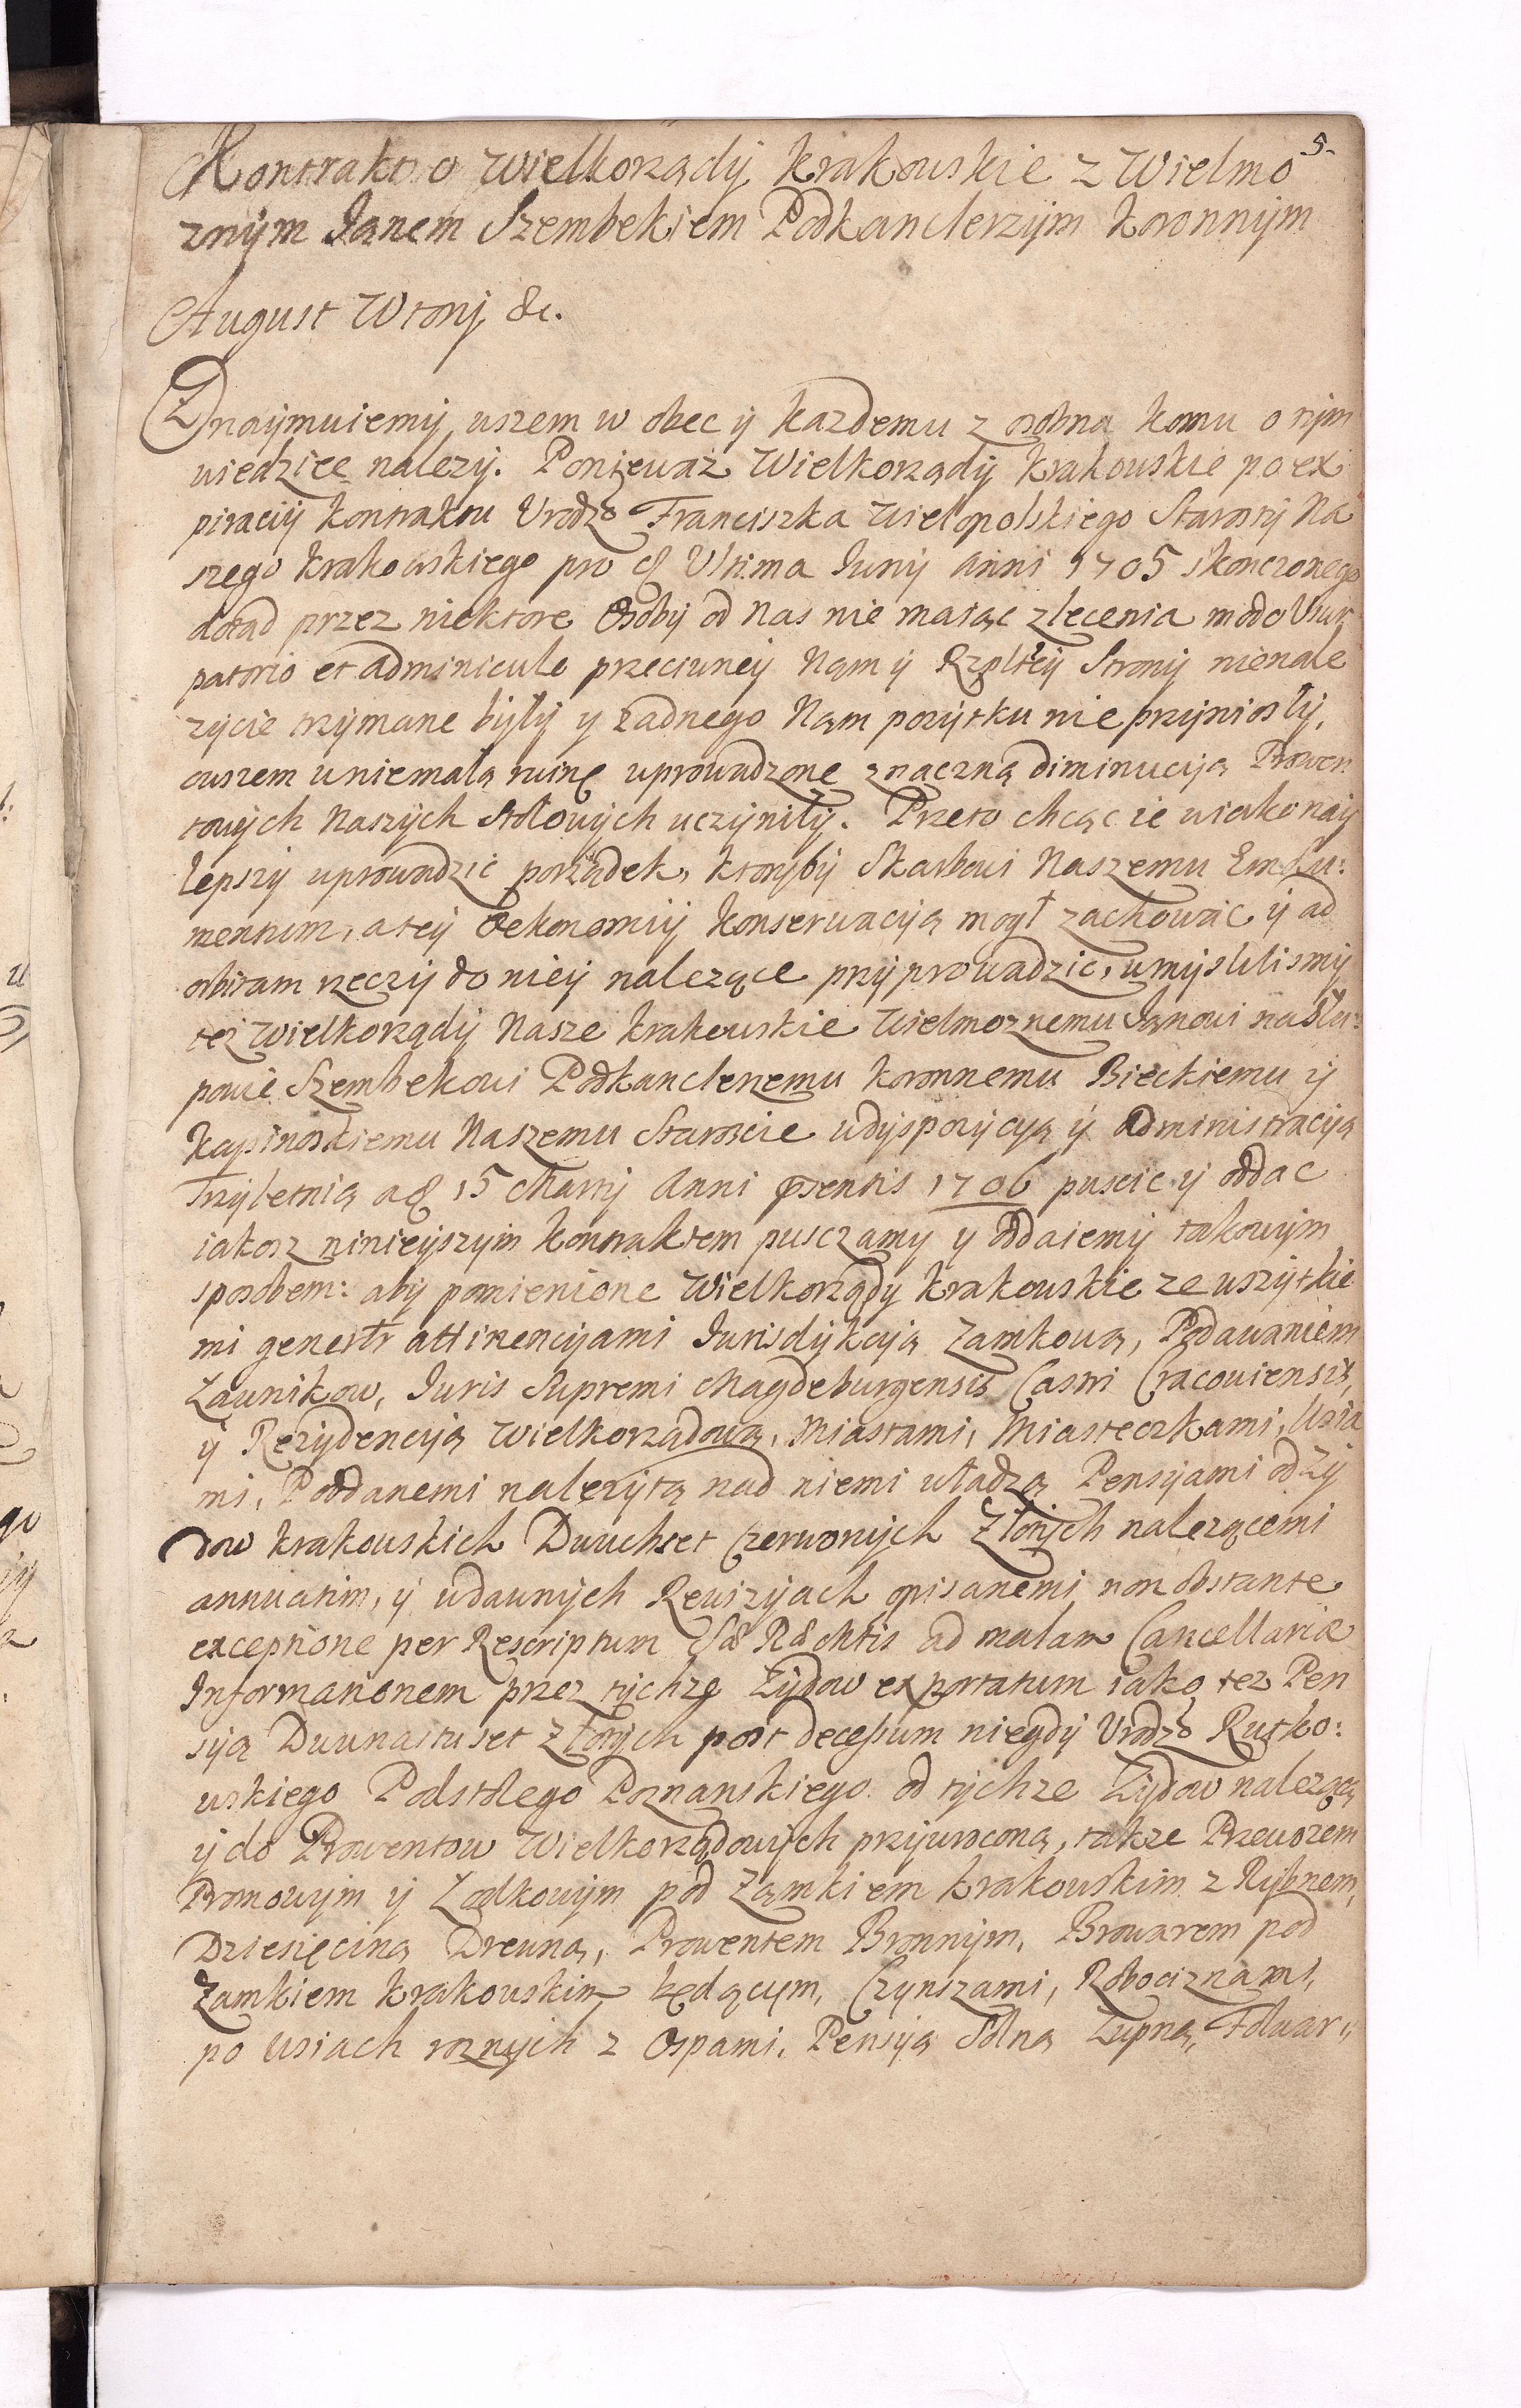 5.
Kontrakt o Wielkorządy Krakowskie z Wielmo
znÿm Janem Szembekiem Podkanclerzÿm Koronnÿm
August Wtorÿ &c.
Znaÿmuiemÿ wszem w obec ÿ kazdemu z osobna komu o tÿm
wiedziec nalezÿ. Poniewaz Wielkorządÿ Krakowskie po ex
piraciÿ kontraktu Urodzo Franciszka Wielopolskiego Starostÿ Na
szego Krakowskiego pro Ultima Junÿ anni 1705 skonczonego
dotąd przez niektore Osobÿ od Nas nie maiąc zlecenia modo Usur
patorio et adminiculo przeciwneÿ Nam ÿ Rzplteÿ Stronÿ nienale
zÿcie trzÿmane bÿłÿ y zadnego Nam pozÿtku nie przÿniosłÿ,
owszem w niemałą ruinę wprowadzone znaczną diminucÿą Prowen
towÿch Naszÿch Stołowÿch uczÿniłÿ. Przeto chcąc ie w iako naÿ
lepszÿ wprowadzic porządek, ktorÿbÿ Skarbowi Naszemu Emolu:
mentum, a teÿ Oekonomiÿ konserwacÿą mogł zachowac ÿ ad
orbitam rzeczÿ do nieÿ nalezące przÿprowadzic, umÿslilismÿ
tez Wielkorządÿ Nasze Krakowskie Wielmoznemu Janowi na Słu:
powie Szembekowi Podkanclerzemu Koronnemu Bieckiemu ÿ
Kapinoskiemu Naszemu Staroscie w dÿspozÿcÿą ÿ Administracÿą
Trzÿletnią a 15 Martÿ Anni psentis 1706 puscic ÿ oddac
iakosz ninieÿszÿm kontraktem pusczamy y oddaiemÿ takowÿm
sposobem: abÿ pomienione Wielkorządy Krakowskie ze wszÿtkie
mi attinencÿami Jurisdÿkcÿą Zamkową, Podawaniem
Ławnikow, Juris Supremi Magdeburgensis Castri Cracoviensis,
ÿ Rezÿdencÿą Wielkorządową, Miastami, Miasteczkami, Wsia
mi, Poddanemi nalezÿtą nad niemi władzą Pensÿami od Zÿ
dow Krakowskich Dwuchset Czerwonÿch Złotÿch nalezącemi
annuatim, ÿ w dawnÿch Rewizÿach opisanemi non obstante
exceptione per Rescriptum ad malam Cancellariæ
Informationem przez tÿchze Zÿdow exportatum iako tez Pen
sÿą Dwunastuset Złotÿch post decessum niegdÿ Urodzo Rutko:
wskiego Podstolego Poznanskiego od tÿchze Zÿdow nalezącą
ÿ do Prowentow Wielkorządowÿch przÿwroconą, takze Przewozem
Promowÿm ÿ Łodkowÿm pod Zamkiem Krakowskim z Rÿbnem,
Dziesięciną Drewną, Prowentem Bronnÿm, Browarem pod
Zamkiem Krakowskim będącym, Czynszami, Robociznami,
po wsiach roznÿch z Ospami, Pensÿą Solną Zupną, Folwar„